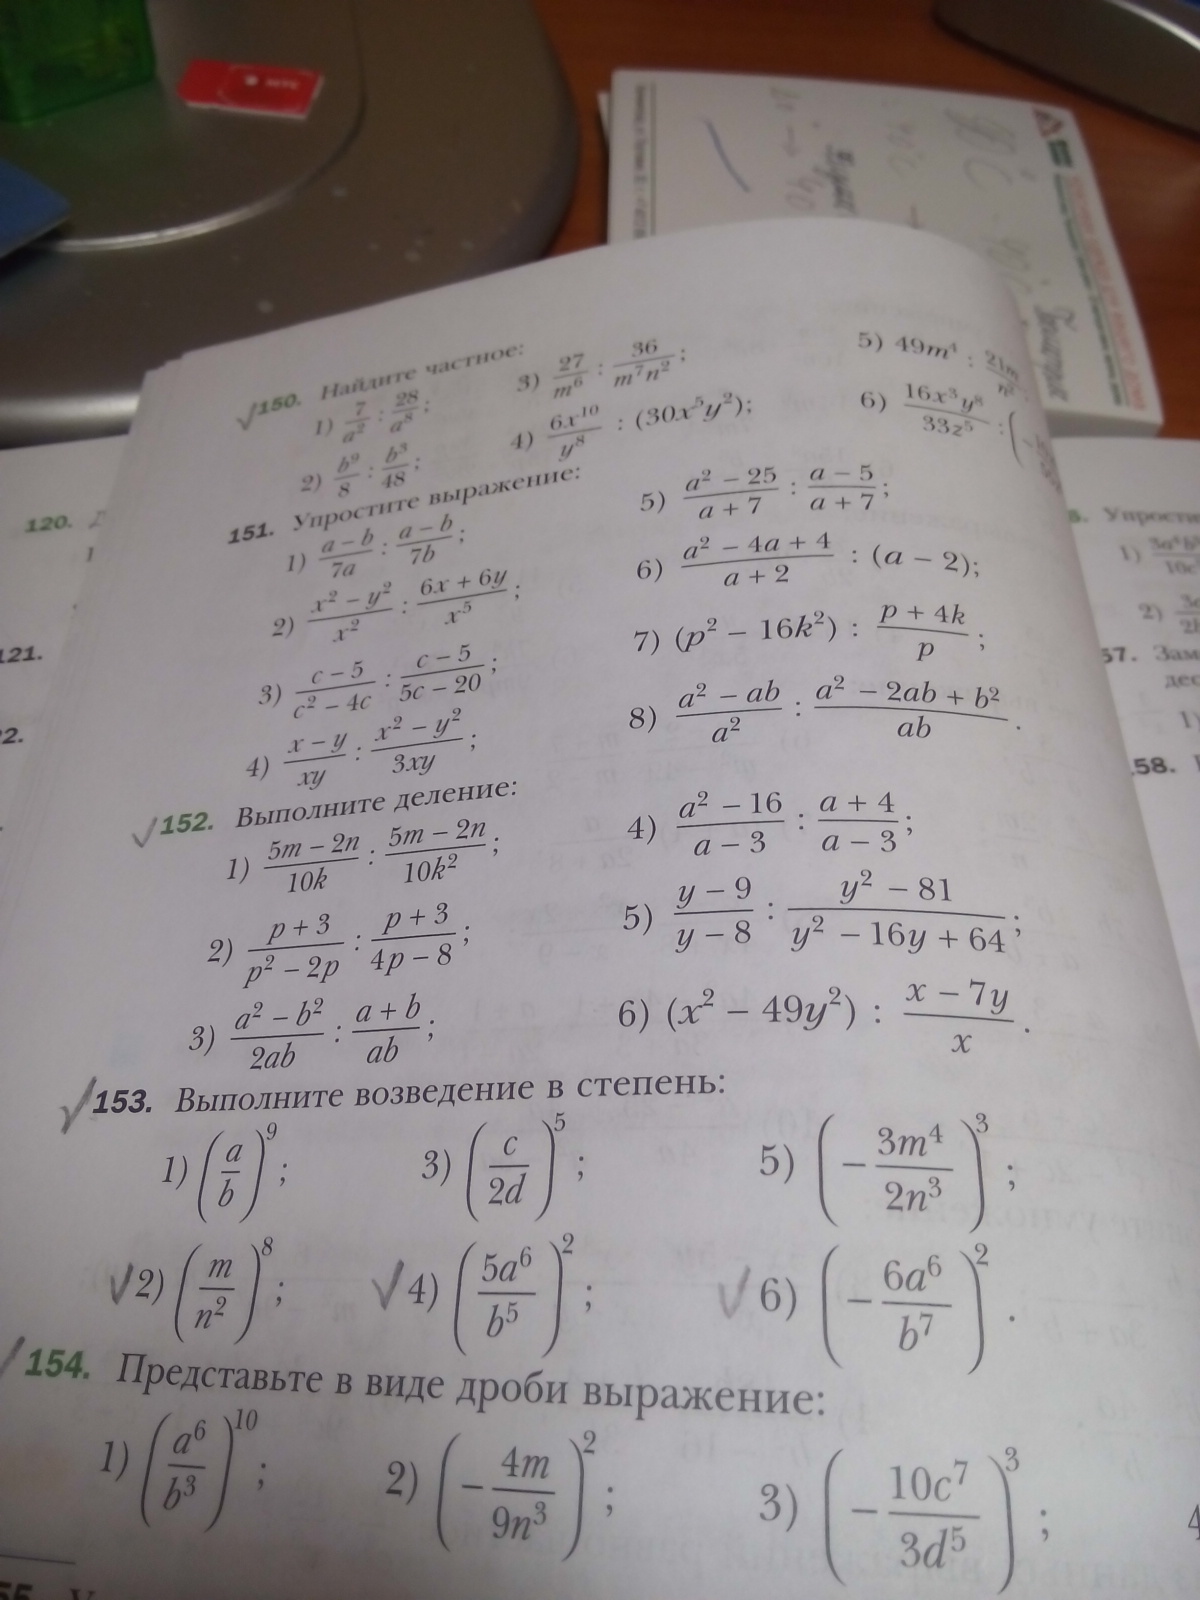 150. Найдите частное:
1) 7/a² : 28/a⁸;
3) 27/m⁶ : 36/(m⁷n²);
5) 49m⁴ :
2) b⁹/8 : b³/48;
4) 6x¹⁰/y⁸ : (30x⁵y²);
6) 16x³y⁸/33z⁵ :
151. Упростите выражение:
1) (a – b)/7a : (a – b)/7b;
2) (x² – y²)/x² : (6x + 6y)/x⁵;
3) (c – 5)/(c² – 4c) : (c – 5)/(5c – 20);
4) (x – y)/xy : (x² – y²)/3xy;
5) (a² – 25)/(a + 7) : (a – 5)/(a + 7);
6) (a² – 4a + 4)/(a + 2) : (a – 2);
7) (p² – 16k²) : (p + 4k)/p;
8) (a² – ab)/a² : (a² – 2ab + b²)/ab.
152. Выполните деление:
1) (5m – 2n)/10k : (5m – 2n)/10k²;
2) (p + 3)/(p² – 2p) : (p + 3)/(4p – 8);
3) (a² – b²)/2ab : (a + b)/ab;
4) (a² – 16)/(a – 3) : (a + 4)/(a – 3);
5) (y – 9)/(y – 8) : (y² – 81)/(y² – 16y + 64);
6) (x² – 49y²) : (x – 7y)/x.
153. Выполните возведение в степень:
1) (a/b)⁹;
3) (c/2d)⁵;
5) (–3m⁴/2n³)³;
2) (m/n²)⁸;
4) (5a⁶/b⁵)²;
6) (–6a⁶/b⁷)².
154. Представьте в виде дроби выражение:
1) (a⁶/b³)¹⁰;
2) (–4m/9n³)²;
3) (–10c⁷/3d⁵)³;
120.
121.